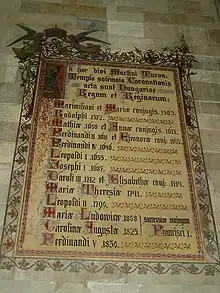 In hoc divi Martini Turon.
Templo solemnia Coronationis
acta sunt Hungariae
Regum et Reginarum.
Maximiliani et Mariae conjugis. 1563.
Rudolphi 1572.
Mathiae 1608 et Annae conjugis. 1613.
Ferdinandi II 1618 et Eleonorae conj. 1622.
Ferdinandi
Leopoldi I 1655.
Josephi I. 1687.
Caroli III. 1712 et Elisabethae conj. 1714.
Mariae Theresiae 1741.
Leopoldi II. 1790.
Mariae Ludovicae 1808
Carolinae Augustae 1825
successive conjugum
Francisci I.
Ferdinandi V 1830.